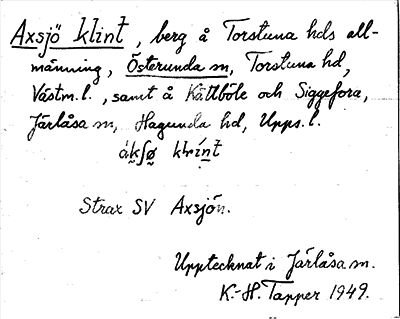 Axsjö klint, berg å Torstuna hds all-
männing, Österunda sn, Torstuna hd,
Västm.l., samt å Kättböle och Siggefora,
Järlåsa sn, Hagunda hd, Upps.l.
Strax SV Axsjön.
Upptecknat i Järlåsa sn.
K.-H. Tapper 1949.